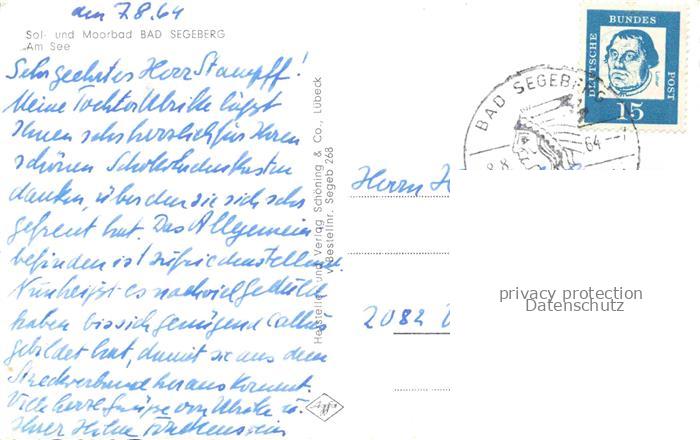 am 7.8.64
Sol- und Moorbad BAD SEGEBERG
Am See
Sehr geehrter Herr Stampff!
Meine Tochter Ulrike lässt
Ihnen sehr herzlich für Ihren
schönen Schokoladenkasten
danken, über den sie sich sehr
gefreut hat. Das Allgemein
befinden ist zufriedenstellend.
Nun heißt es noch viel Geduld
haben bis sich genügend Callus
gebildet hat, damit sie aus dem
Streckverband heraus kommt.
Viele herzl. Grüße von Ulrike u.
Ihrer
Hersteller und Verlag Schöning & Co., Lübeck
Bestellnr. Segeb 268
Agfa
DEUTSCHE
BUNDES
POST
15
BAD SEGEBERG
64
Herrn H
2082
privacy protection
Datenschutz